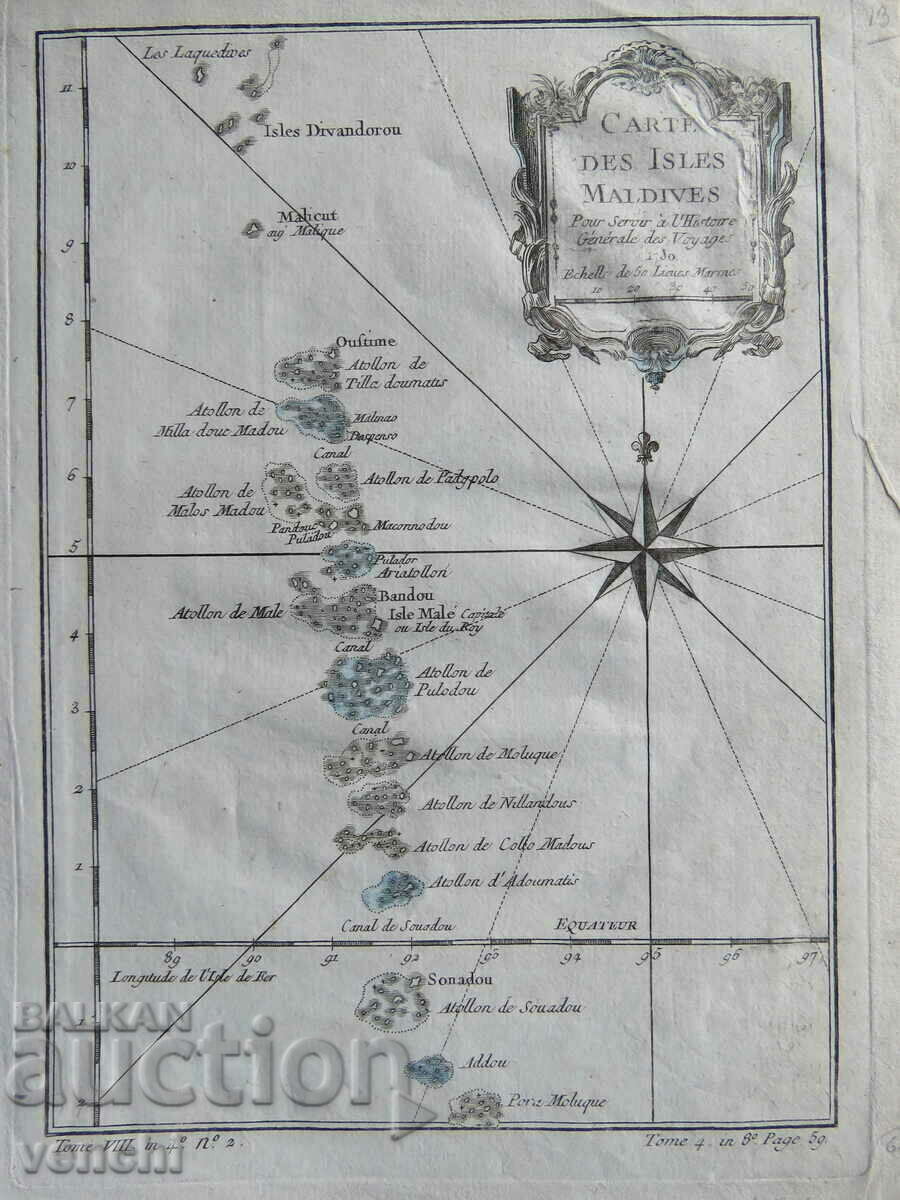 13
CARTE
DES ISLES
MALDIVES
Pour Servir à l'Histoire
Générale des Voyages
1750
Echelle de 50 Lieues Marines
10 20 30 40 50
Les Laquedives
Isles Divandorou
Malicut
Malique
Oustime
Atollon de
Tilla doumatis
Atollon de
Milla douc Madou
Malmao
Despenso
Canal
Atollon de
Malos Madou
Pandouc
Puladou
Maconnodou
Pulador
Ariatollon
Bandou
Atollon de Male
Isle Malé Capitale
ou Isle du Roy
Canal
Atollon de
Pulodou
Canal
Atollon de Moluque
Atollon de Nillandous
Atollon de Collo Madous
Atollon d'Adoumatis
Canal de Souadou
EQUATEUR
11
10
9
8
7
6
5
4
3
2
1
89 90 91 92 93 94 95 96 97
Longitude de l'Isle de Fer
Sonadou
Atollon de Souadou
1
Addou
2
Pora Moluque
Tome VIII in 4º. Nº. 2.
Tome 4. in 8º. Page 59.
BALKAN
auction
veneni